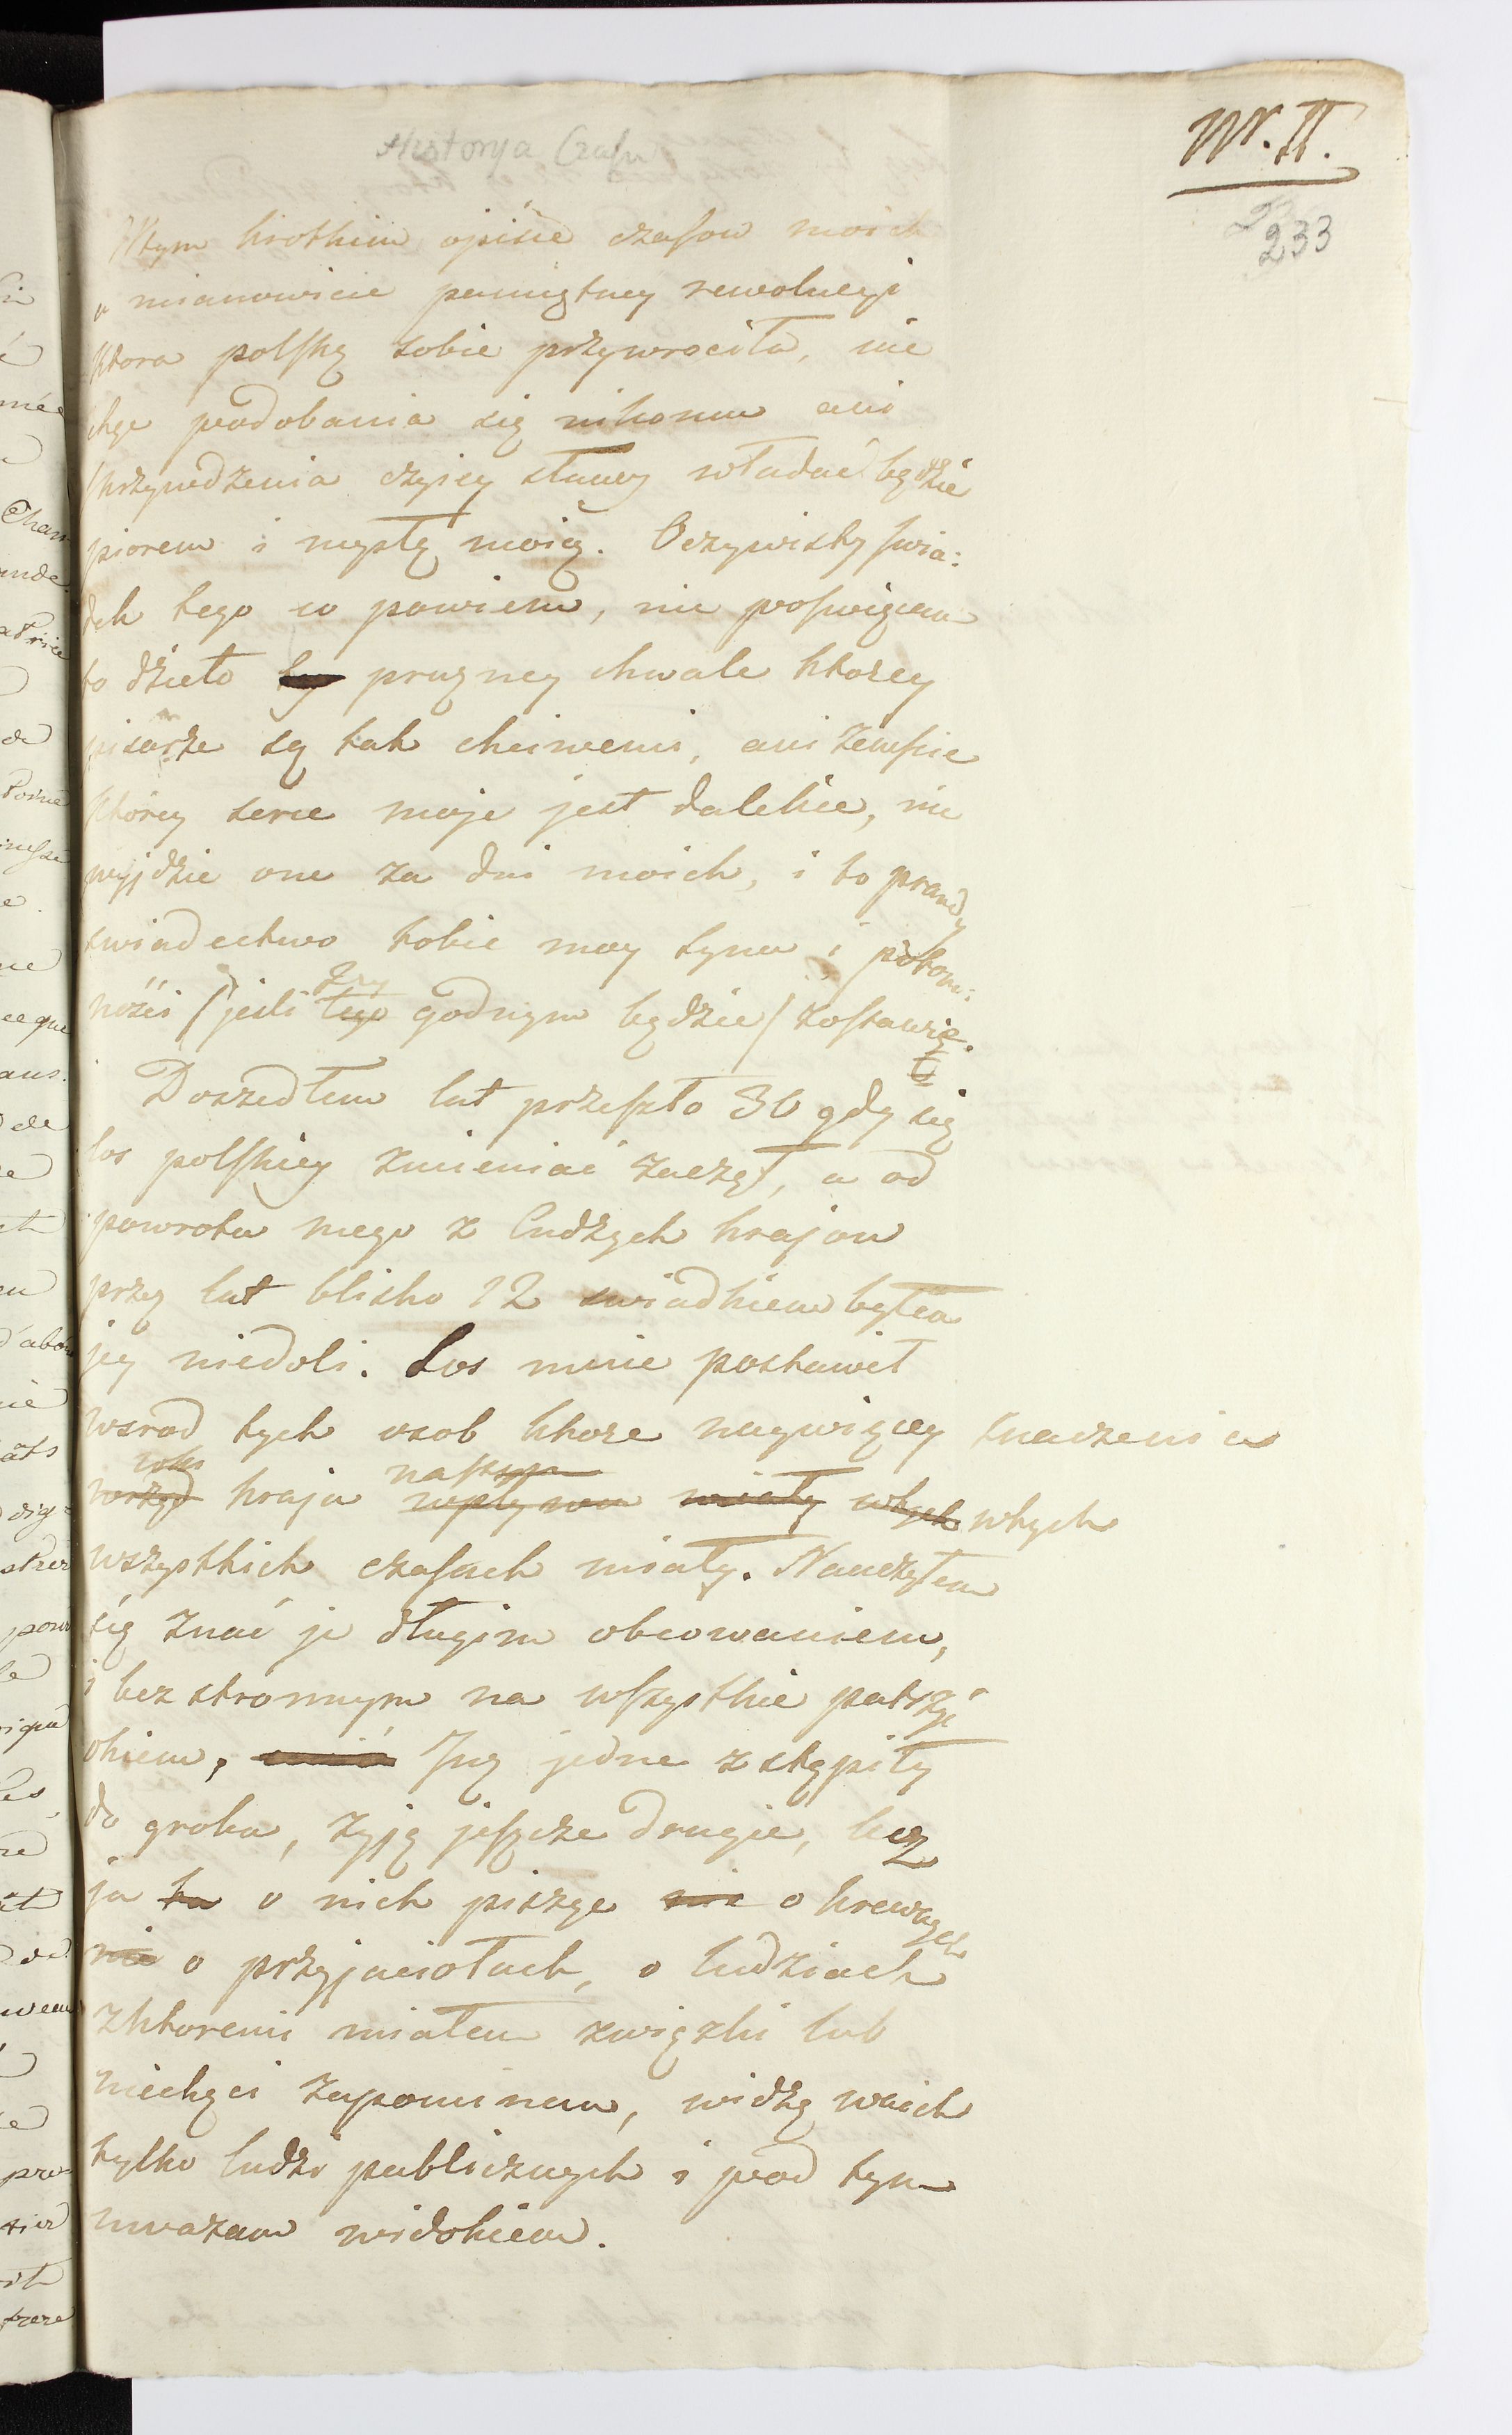 Nr. II.
233
Historya Czasu
W tym krotkim opisie czasow moich
a mianowicie pamiętney rewolucyi
ktora polskę sobie przywrociła, nie
chęc podobania się nikomu ani
skrzywdzenia czyiey sławy władać będzie
piorem i myslą moią. Oczywisty swia:
dek tego co powiem, nie poswięcam
to dzieło prużney chwale ktorey
pisarze są tak chciwemi, ani zemscie
ktorey serce moje jest dalekie, nie
wyjdzie one za dni moich, i to prawdy
swiadectwo tobie moy synu i potom:
nosci (jesli tego godnym będzie) zostawię.
Doszedłem lat przeszło 30 gdy się
los polskiey zmieniać zaczął, a od
powrotu mego z Cudzych krajow
przez lat blisko 12 swiadkiem byłem
jey niedoli. Los mnie postawił
wsrod tych osob ktore naywięcey znaczenia
kraju naszym wpływu miały wtych wtych
wszystkich czasach miały. Nauczyłem
się znać je długim obcowaniem,
i bezstronnym na wszystkie patrzyć
okiem, Już jedne zstąpiły
do grobu, żyją jeszcze drugie, lecz
ja o nich piszęc nie o krewnych
nie o przyjaciołach, o ludziach
z ktoremi miałem związki lub
niechęci zapominam, widzę wnich
tylko ludzi publicznych i pod tym
uważam widokiem.